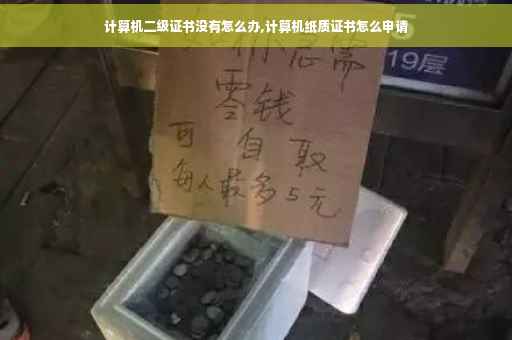 计算机二级证书没有怎么办,计算机纸质证书怎么申请
你急需
零钱
可自取
每人最多5元
5
19层